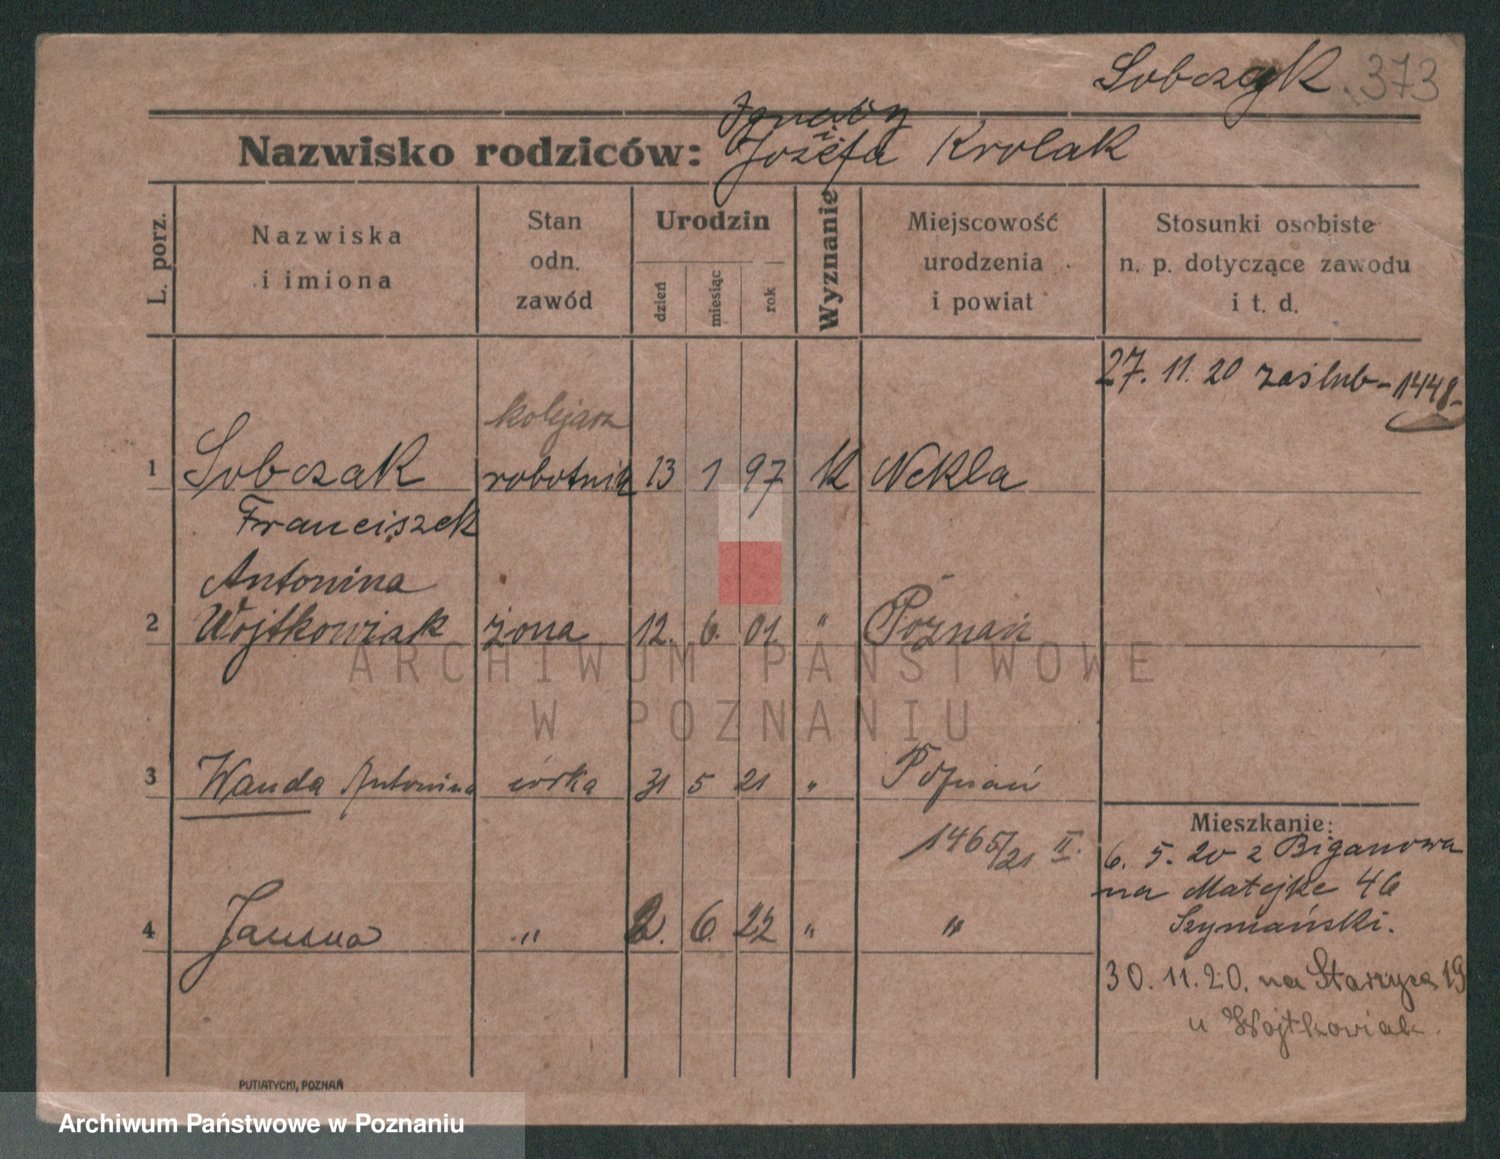 Sobczyk 373
Ignacy
Nazwisko rodziców: i Józefa Krolak
L. porz.
Nazwiska
i imiona
Stan
odn.
zawód
Urodzin
dzień
miesiąc
rok
Wyznanie
Miejscowość
urodzenia
i powiat
Stosunki osobiste
n. p. dotyczące zawodu
i t. d.
27. 11. 20 zaślub-1448-
kolejarz
1 Sobczak robotnik 13 1 97 k Nekla
Franciszek
Antonina
2 Wojtkowiak żona 12. 6. 01. " Poznań
ARCHIWUM PAŃSTWOWE
W POZNANIU
3 Wanda Antonina córka 31 5 21 " Poznań
1465/21 II.
4 Janina " 2. 6. 22 " "
Mieszkanie:
6. 5. 20 z Biganowa
na Matejke 46
Szymański.
30. 11. 20. na 19
u Wojtkowiak.
PUTIATYCKI, POZNAŃ
Archiwum Państwowe w Poznaniu